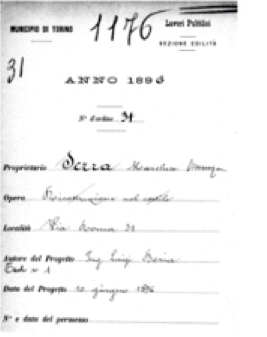 MUNICIPIO DI TORINO
1176
Lavori Pubblici
SEZIONE EDILITÀ
31
ANNO 1896
N° d'ordine 31.
Proprietario Serra
Opera nel
Località Via Roma 31
Autore del Progetto Ing Luigi
Data del Progetto 10 giugno 1896
N° e data del permesso